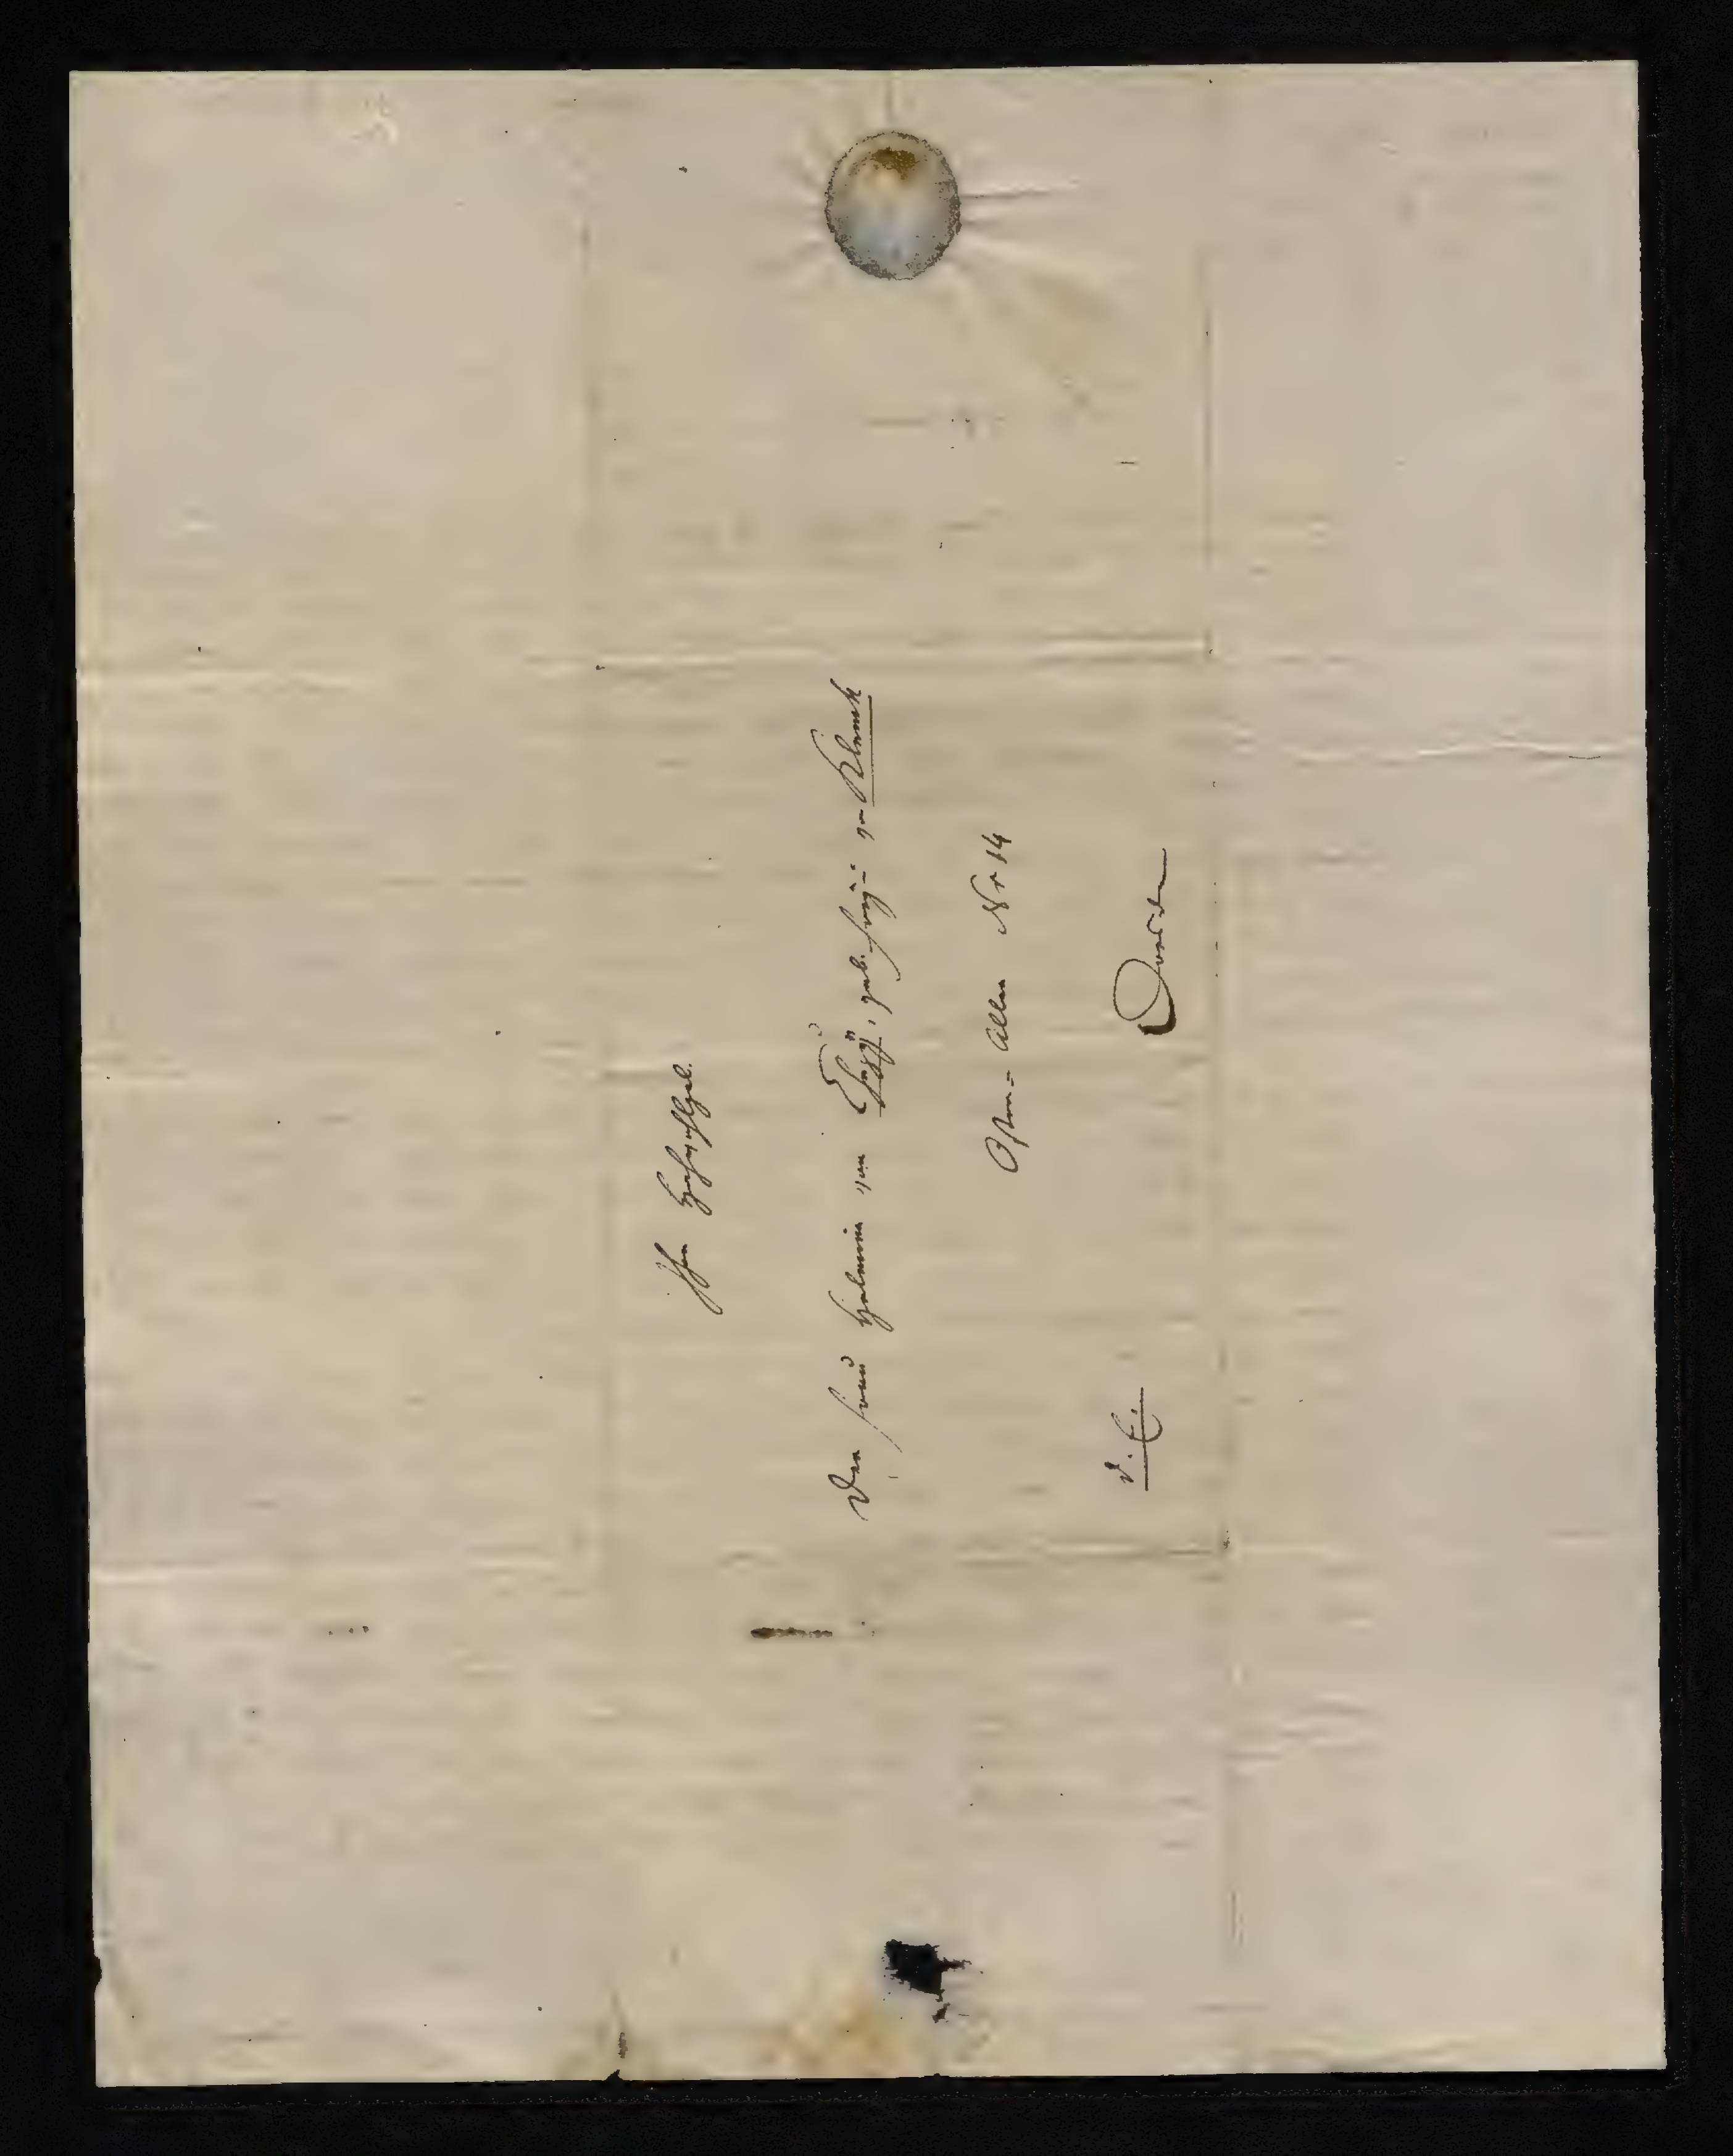 Ihr Hochwohlgeb.
Der Frau Helmina von Chézy, geb. Freyin von Klenck
Ostra-Allee Nr 14
d. E.
Dresden